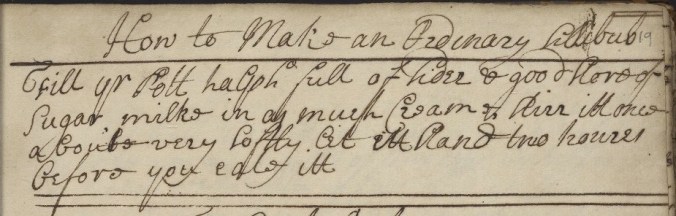 How to Make an Ordinary Sillibub 19
Fill yr Pott halfh full of Sider & good store of
Sugar milke in as much Cream & stirr itt once
aboute very softly let itt stand two houres
before you eate itt